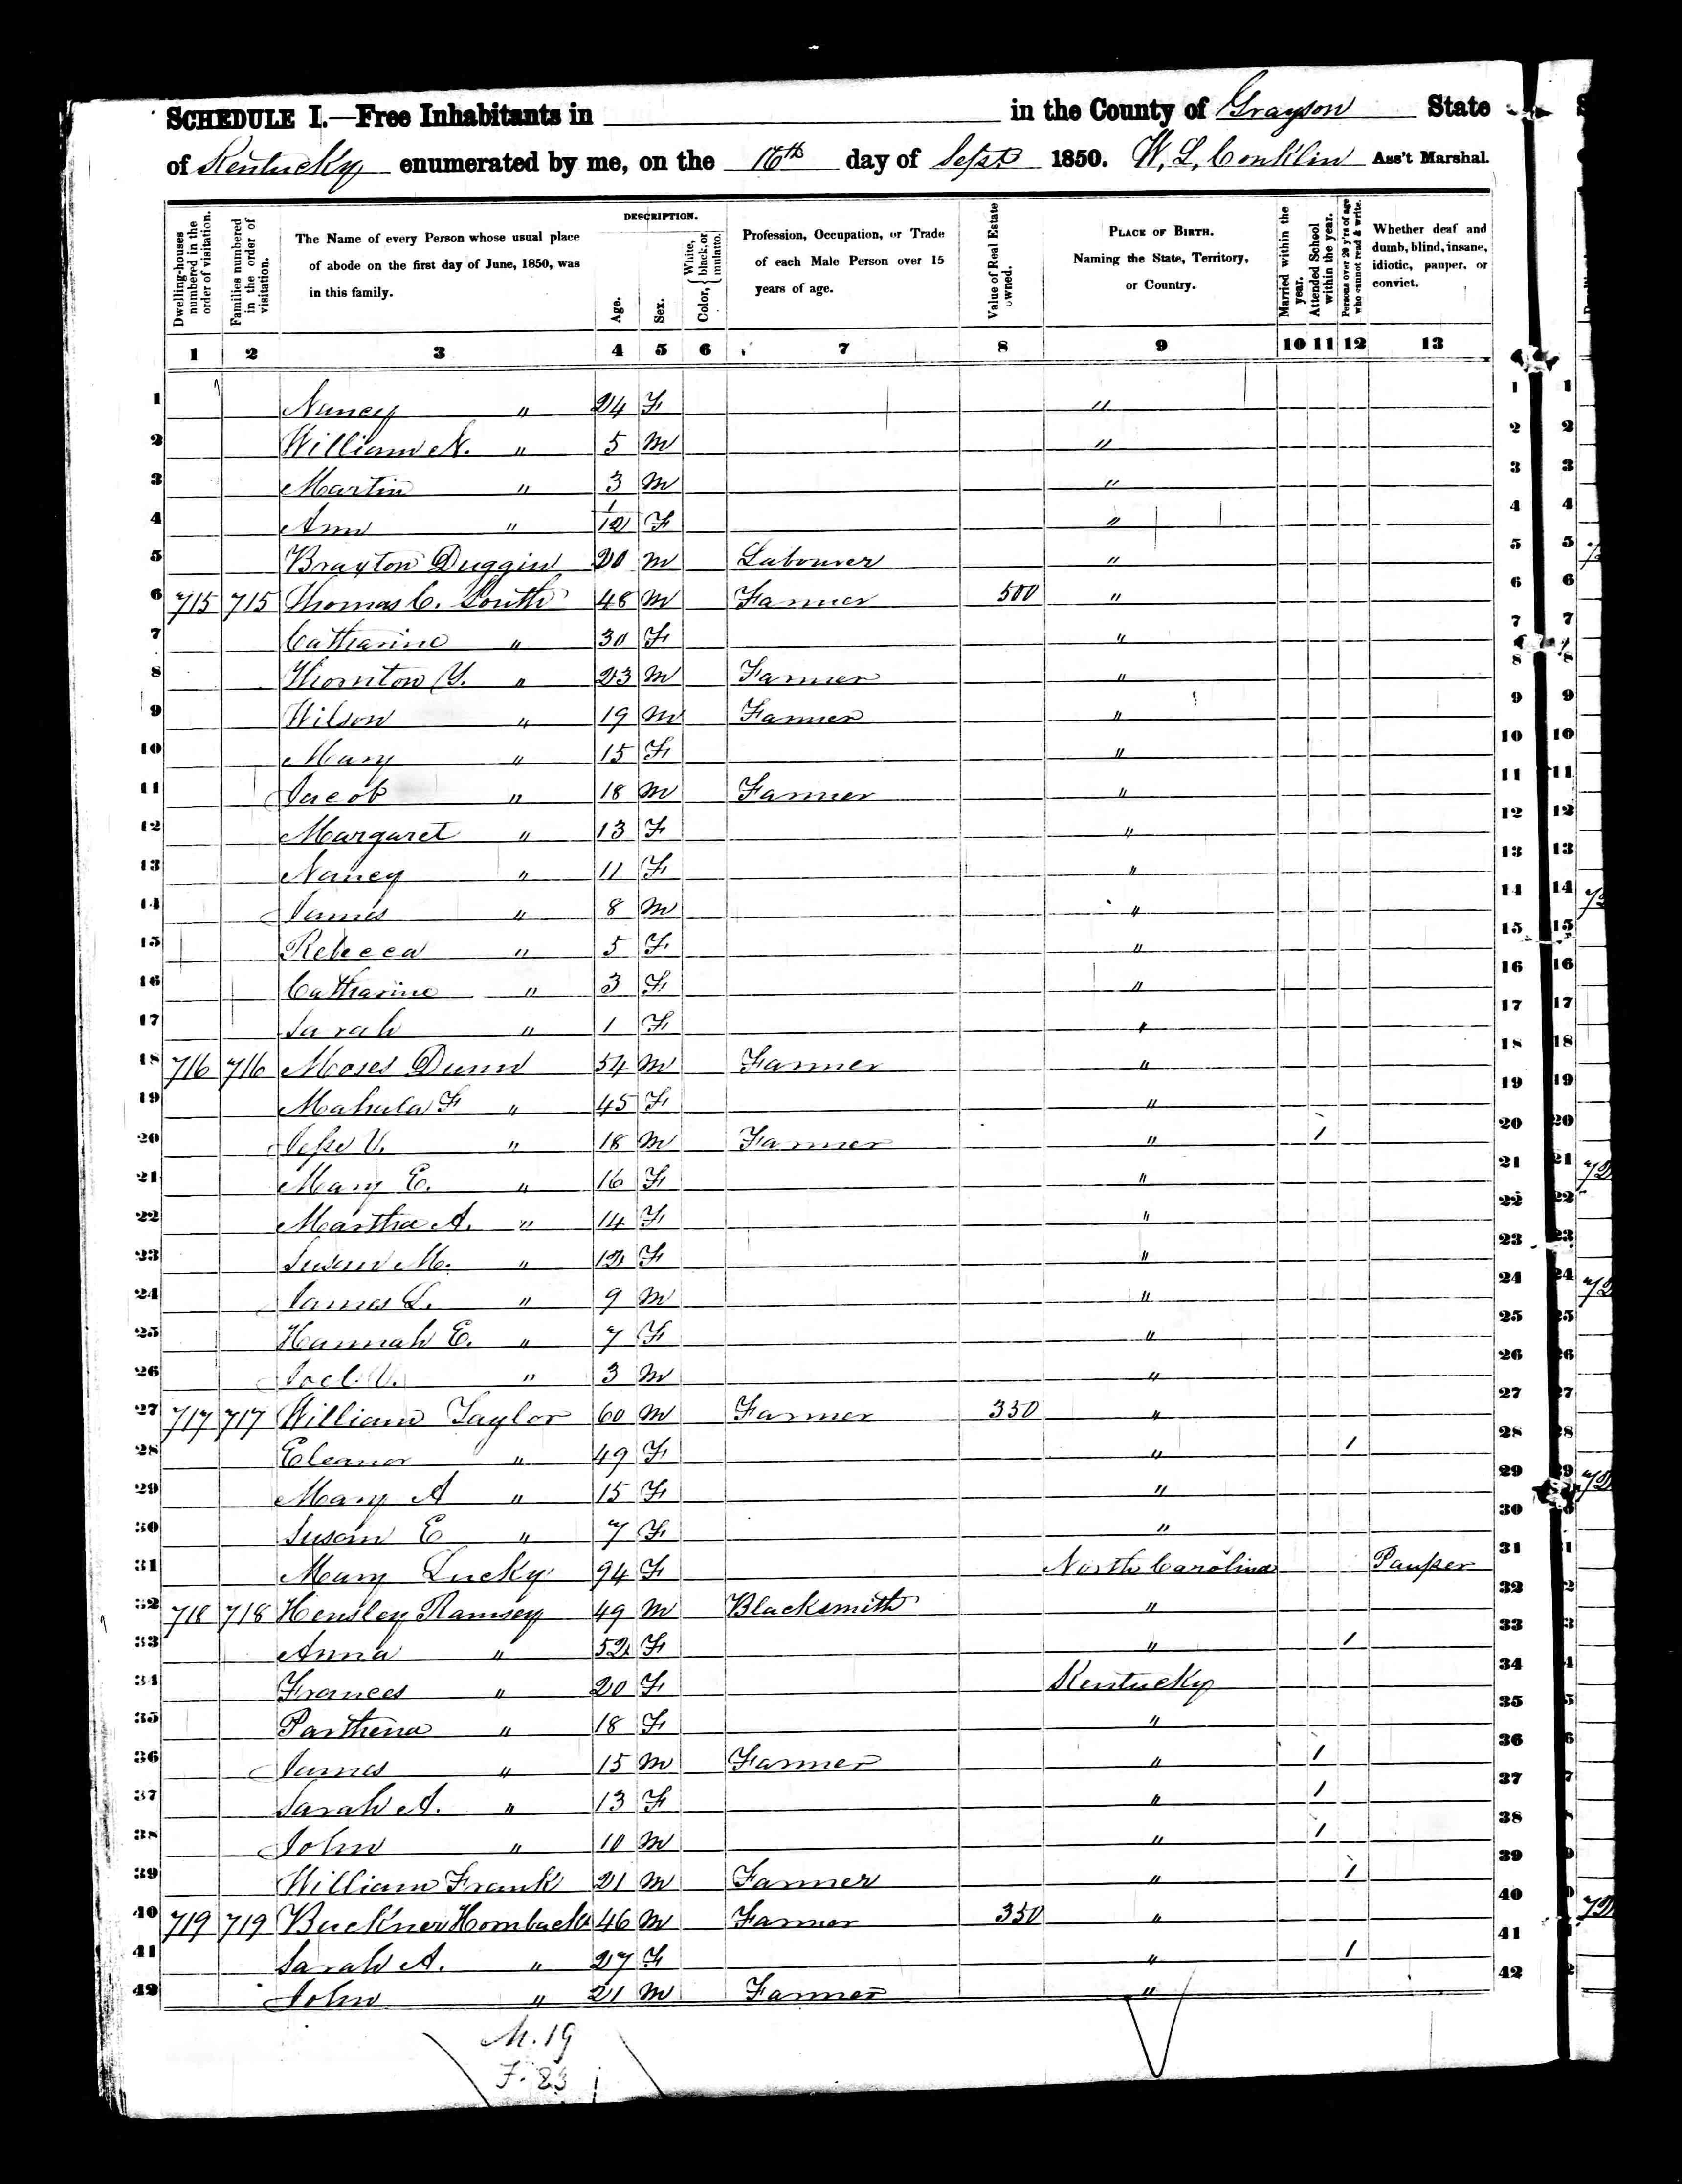 SCHEDULE I.—Free Inhabitants in in the County of Grayson State
of Kentucky enumerated by me, on the 16th day of Sept 1850. W. L. Conklin Ass't Marshal.
Dwelling-houses numbered in the order of visitation.
Families numbered in the order of visitation.
The Name of every Person whose usual place of abode on the first day of June, 1850, was in this family.
DESCRIPTION.
Age.
Sex.
Color, { White, black, or mulatto.
Profession, Occupation, or Trade of each Male Person over 15 years of age.
Value of Real Estate owned.
PLACE OF BIRTH. Naming the State, Territory, or Country.
Married within the year.
Attended School within the year.
Persons over 20 y'rs of age who cannot read & write.
Whether deaf and dumb, blind, insane, idiotic, pauper, or convict.
1 2 3 4 5 6 7 8 9 10 11 12 13
1 Nancy " 24 F " 1
2 William N. " 5 M " 2
3 Martin " 3 M " 3
4 Ann " 1/12 F " 4
5 Braxton Duggin 20 M Labourer " 5
6 715 715 Thomas C. South 48 M Farmer 500 " 6
7 Catharine " 30 F " 7
8 Thornton Y. " 23 M Farmer " 8
9 Wilson " 19 M Farmer " 9
10 Mary " 15 F " 10
11 Jacob " 18 M Farmer " 11
12 Margaret " 13 F " 12
13 Nancy " 11 F " 13
14 James " 8 M " 14
15 Rebecca " 5 F " 15
16 Catharine " 3 F " 16
17 Sarah " 1 F " 17
18 716 716 Moses Dunn 54 M Farmer " 18
19 Mahala F " 45 F " 19
20 Jesse V. " 18 M Farmer " 1 20
21 Mary E. " 16 F " 21
22 Martha A. " 14 F " 22
23 Susan M. " 12 F " 23
24 James L. " 9 M " 24
25 Hannah E. " 7 F " 25
26 Joel V. " 3 M " 26
27 717 717 William Taylor 60 M Farmer 350 " 27
28 Eleanor " 49 F " 1 28
29 Mary A " 15 F " 29
30 Susan E " 7 F " 30
31 Mary Lucky 94 F North Carolina Pauper 31
32 718 718 Hensley Ramsey 49 M Blacksmith " 32
33 Anna " 52 F " 1 33
34 Frances " 20 F Kentucky 34
35 Parthena " 18 F " 35
36 James " 15 M Farmer " 1 36
37 Sarah A. " 13 F " 1 37
38 John " 10 M " 1 38
39 William Frank 21 M Farmer " 1 39
40 719 719 Buckner Hornback 46 M Farmer 350 " 40
41 Sarah A. " 27 F " 1 41
42 John " 21 M Farmer " 42
M. 19
F. 23